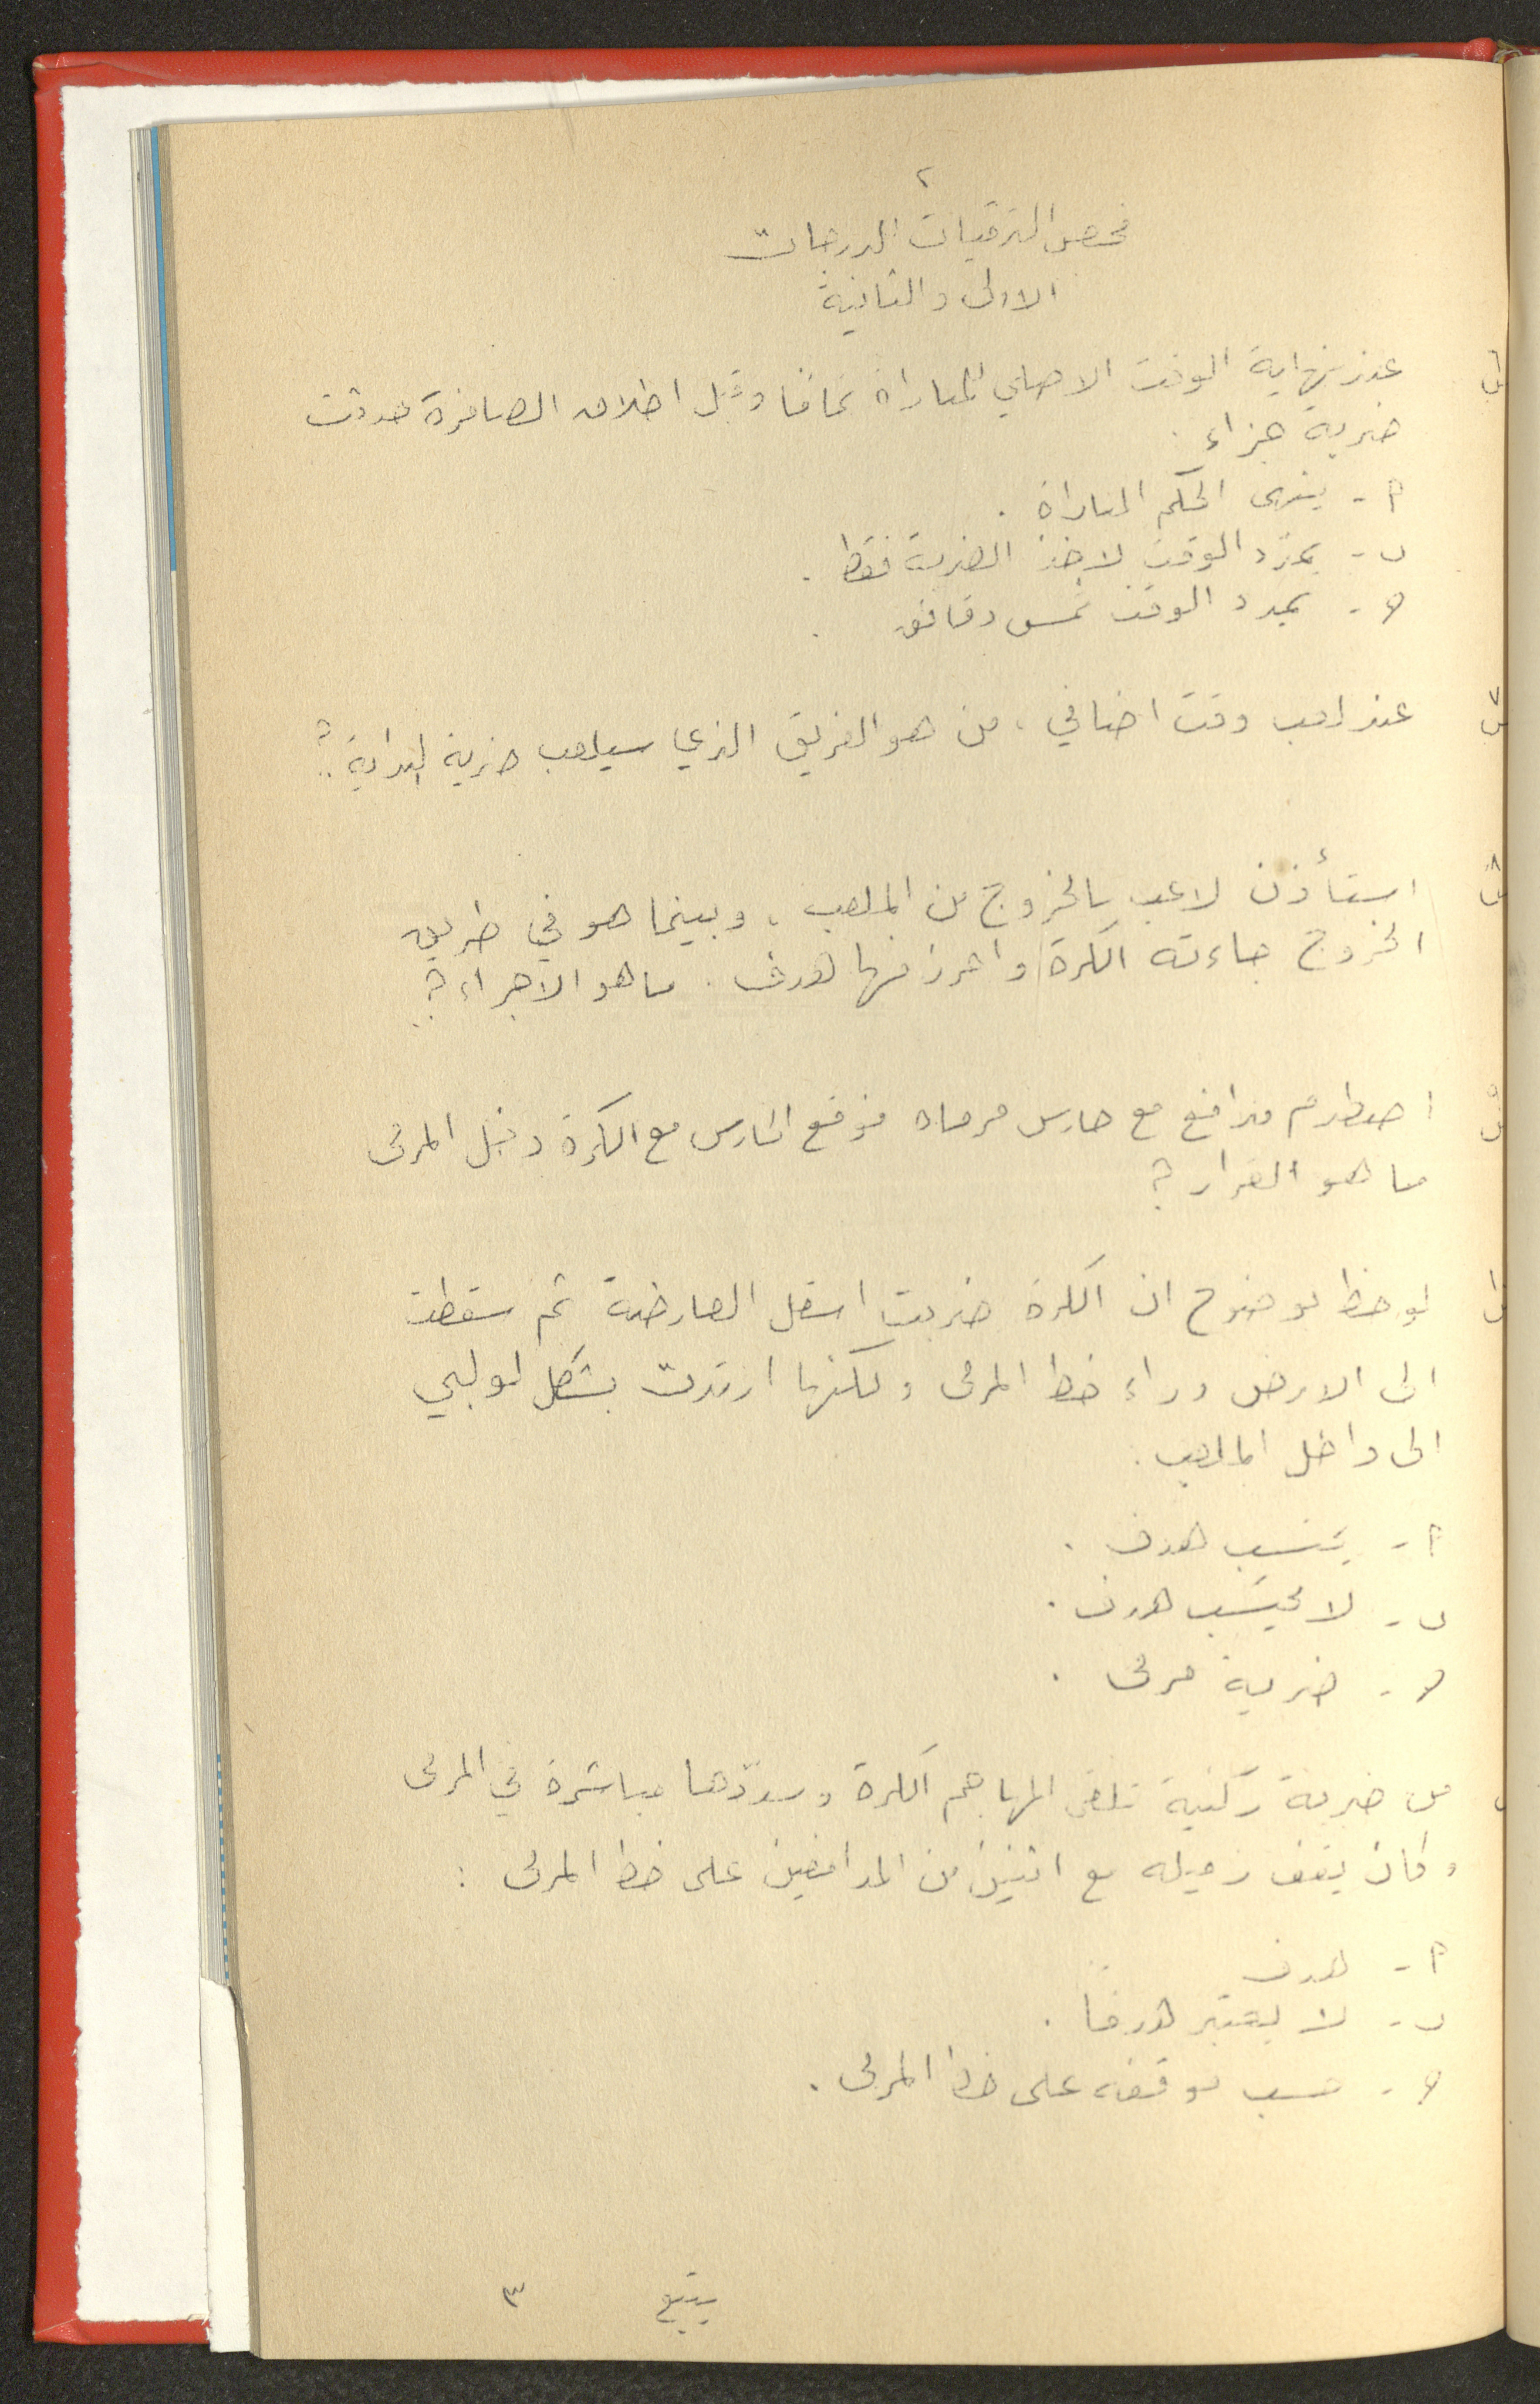 ٢
فحص الترقيات الدرجات
الاولى والثانية
عند نهاية الوقت الاصلي للمباراة تماما وقبل اطلاق الصافرة حدثت
ضربة جزاء .
٢ - ينهي الحكم المباراة .
ب - يمدّد الوقت لاخذ الضربة فقط .
ج - يمدد الوقت خمس دقائق .
عند لعب وقت اضافي ، من هو الفريق الذي سيلعب ضربة البداية ؟
استأذن لاعب بالخروج من الملعب ، وبينما هو في طريق
الخروج جاءته الكرة واحرز منها هدف . ما هو الاجراء ؟
اصطدم مدافع مع حارس مرماه فوقع الحارس مع الكرة دخل المرمى
ما هو القرار ؟
لوحظ بوضوح ان الكرة ضربت اسفل العارضة ثم سقطت
الى الارض وراء خط المرمى ولكنها ارتدت بشكل لولبي
الى داخل الملعب .
أ - يحتسب هدف .
ب - لا يحتسب هدف .
ج - ضربة مرمى .
من ضربة ركنية تلقى المهاجم الكرة وسدّدها مباشرة في المرمى
وكان يقف زميله مع اثنين من المدافعين على خط المرمى :
أ - هدف
ب - لا يعتبر هدفاً .
ج - حسب موقفه على خط المرمى .
يتبع ٣